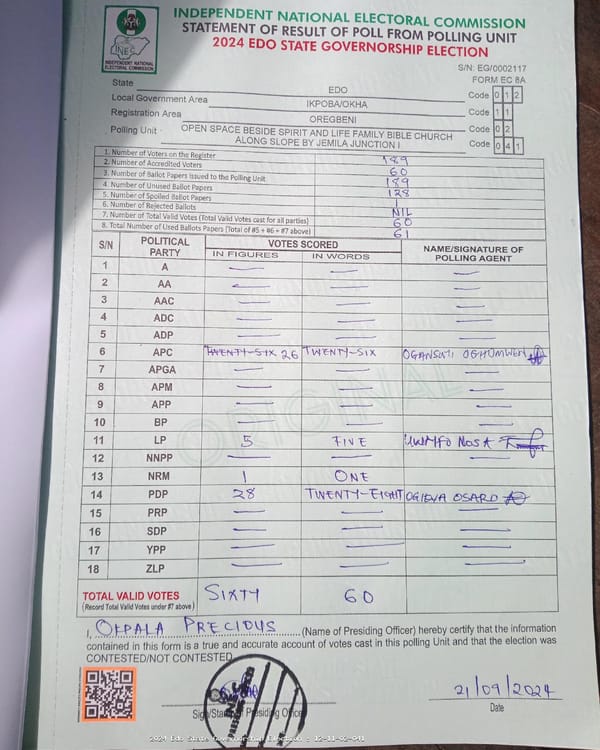 INDEPENDENT NATIONAL ELECTORAL COMMISSION
STATEMENT OF RESULT OF POLL FROM POLLING UNIT
2024 EDO STATE GOVERNORSHIP ELECTION
INEC
INDEPENDENT NATIONAL
ELECTORAL COMMISSION
S/N: EG/0002117
FORM EC 8A
State EDO Code 0 1 2
Local Government Area IKPOBA/OKHA Code 1 1
Registration Area OREGBENI Code 0 2
Polling Unit OPEN SPACE BESIDE SPIRIT AND LIFE FAMILY BIBLE CHURCH
ALONG SLOPE BY JEMILA JUNCTION I Code 0 4 1
1. Number of Voters on the Register 189
2. Number of Accredited Voters 60
3. Number of Ballot Papers Issued to the Polling Unit 189
4. Number of Unused Ballot Papers 128
5. Number of Spoiled Ballot Papers 1
6. Number of Rejected Ballots NIL
7. Number of Total Valid Votes (Total Valid Votes cast for all parties) 60
8. Total Number of Used Ballots Papers (Total of #5 + #6 + #7 above) 61
S/N POLITICAL PARTY VOTES SCORED NAME/SIGNATURE OF POLLING AGENT
IN FIGURES IN WORDS
1 A — — —
2 AA — — —
3 AAC — — —
4 ADC — — —
5 ADP — — —
6 APC TWENTY-SIX 26 TWENTY-SIX OGHUMWEN
7 APGA — — —
8 APM — — —
9 APP — — —
10 BP — — —
11 LP 5 FIVE NOSA
12 NNPP — — —
13 NRM 1 ONE
14 PDP 28 TWENTY-EIGHT OSARO
15 PRP — — —
16 SDP — — —
17 YPP — — —
18 ZLP — — —
ORIGINAL
TOTAL VALID VOTES SIXTY 60
(Record Total Valid Votes under #7 above)
I, OKPALA PRECIOUS (Name of Presiding Officer) hereby certify that the information
contained in this form is a true and accurate account of votes cast in this polling Unit and that the election was
CONTESTED/NOT CONTESTED
21/09/2024
Sign/Stamp of Presiding Officer
Date
2024 Edo State Governorship Election : 12-11-02-041